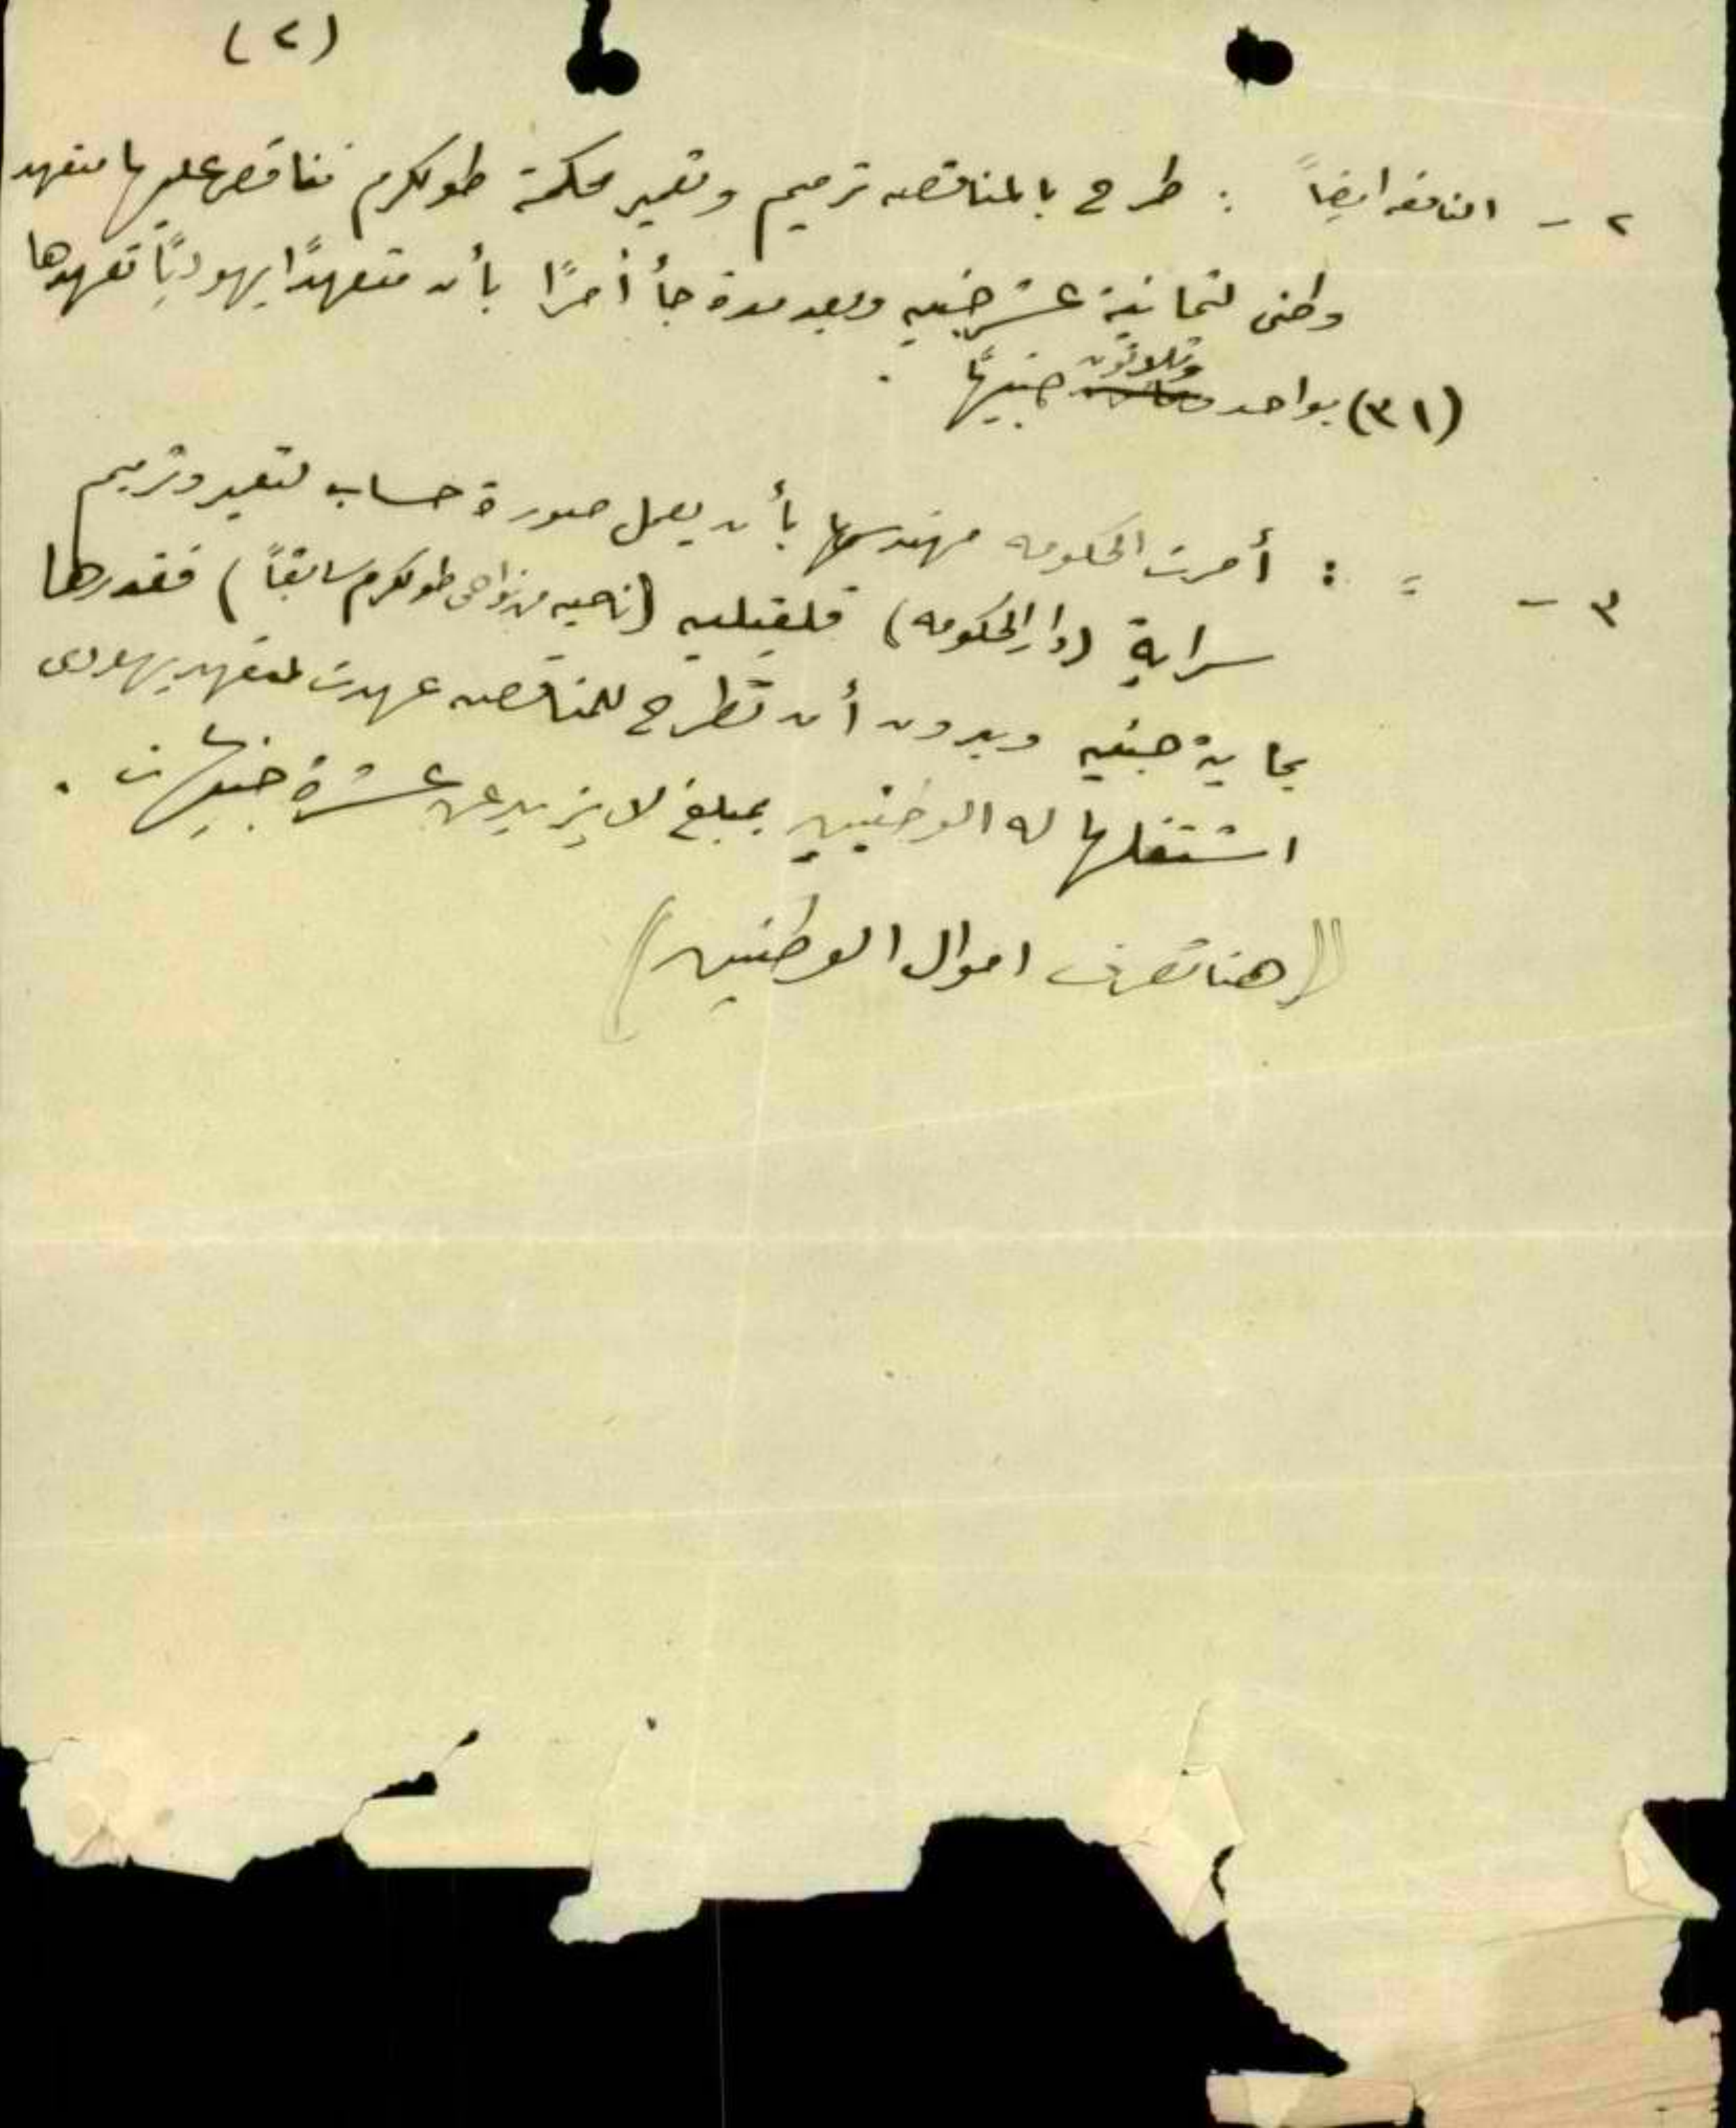 (٢)
٢ - النافعه ايضاً : طرح بالمناقصه ترميم وتعمير محكمة طولكرم فناقص عليها متعهد
وطنى لثمانية عشر جنيه وبعد مدة جأ أمرًا بأن متعهدًا يهوديًا تعهدها
(٣١) بواحد وثلاثون جنيهًا .
٣ - = : أمرت الحكومه مهندسها بأن يعمل صورة حساب لتعمير وترميم
سراية (دار الحكومه) قلقيليه (ناحيه من نواحى طولكرم سابقاً) فقدرها
بماية جنيه وبدون أن تطرح للمناقصه عهدت لمتعهد يهودى
اشتغلها له الوطنيين بمبلغ لا يزيد عن عشرة جنيهات .
((هنا تصرف اموال الوطنيين))